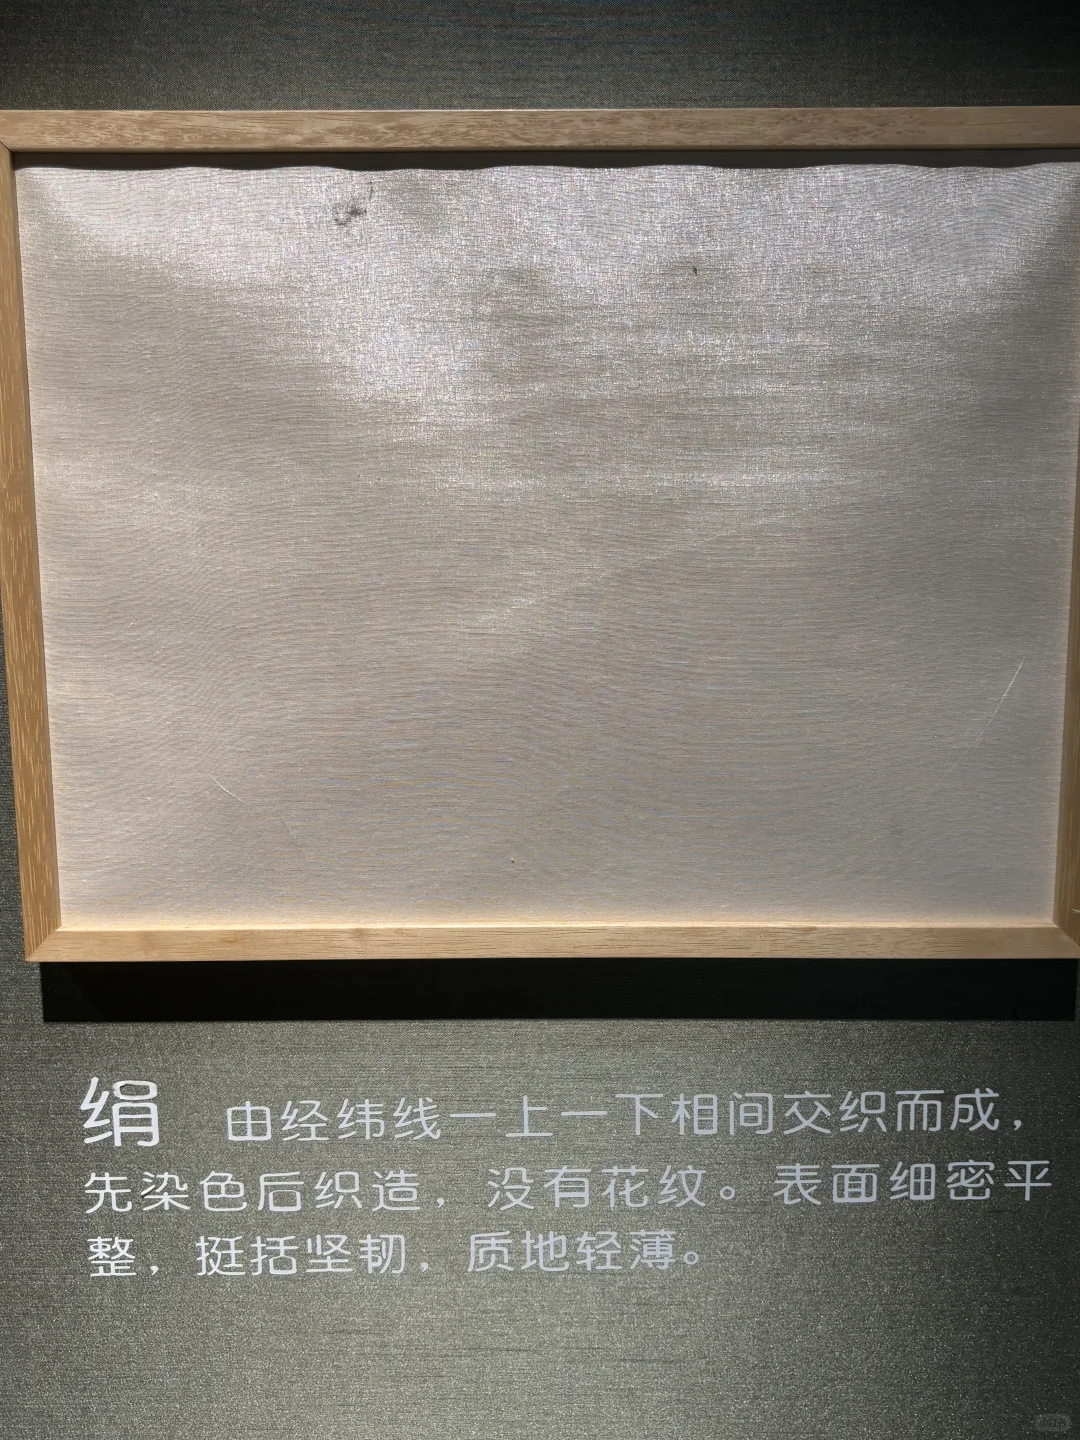 绢 由经纬线一上一下相间交织而成，
先染色后织造，没有花纹。表面细密平
整，挺括坚韧，质地轻薄。